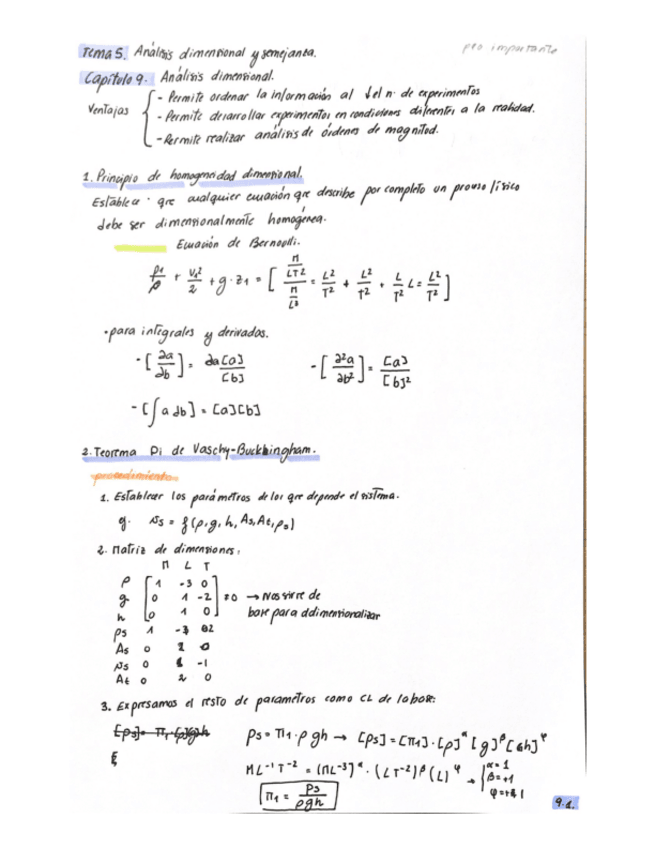 Tema 5. Análisis dimensional y semejanza.
pro importante
Capítulo 9. Análisis dimensional.
Ventajas { - Permite ordenar la información al ↓ el nº de experimentos
- Permite desarrollar experimentos en condiciones diferentes a la realidad.
- Permite realizar análisis de órdenes de magnitud.
1. Principio de homogeneidad dimensional.
Establece que cualquier ecuación que describe por completo un proceso físico
debe ser dimensionalmente homogénea.
Ecuación de Bernoulli.
p₁/ρ + V₁²/2 + g·z₁ = [ (M/LT²)/(M/L³) = L²/T² + L²/T² + L/T² L = L²/T² ]
·para integrales y derivados.
- [∂a/∂b] = ∂a[a]/[b] - [∂²a/∂b²] = [a]/[b]²
- [∫a db] = [a][b]
2. Teorema Pi de Vaschy-Buckingham.
procedimiento
1. Establecer los parámetros de los que depende el sistema.
g. vs = f(ρ, g, h, As, At, ps)
2. Matriz de dimensiones:
M L T
ρ 1 -3 0
g 0 1 -2 ≠0 → Nos sirve de
h 0 1 0 base para ddimensionalizar
ps 1
As 0
vs 0 -1
At 0 2 0
3. Expresamos el resto de parámetros como CL de la base:
[ps] = π₁·[ρ]gh ps = π₁·ρgh → [ps] = [π₁]·[ρ]^α [g]^β [h]^φ
ML⁻¹T⁻² = (ML⁻³)^α · (LT⁻²)^β (L)^φ → { α=1
β=+1
φ=+1
π₁ = ps/ρgh
9.1.